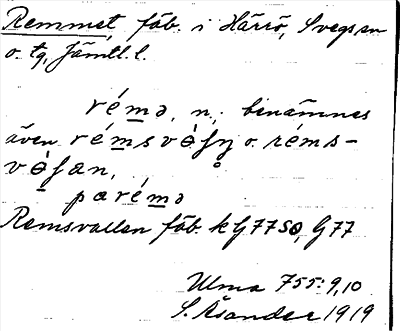 Remmet fäb. i Härrö, Svegs sn
o. tg, Jämtl. l.
rémə, n., benämnes
även rémsvèſŋ o. réms-
vèſan,
pa rémə
Remsvallen fäb. k G77 SO, G77
Ulma 755: 9,10
S. Åsander 1919